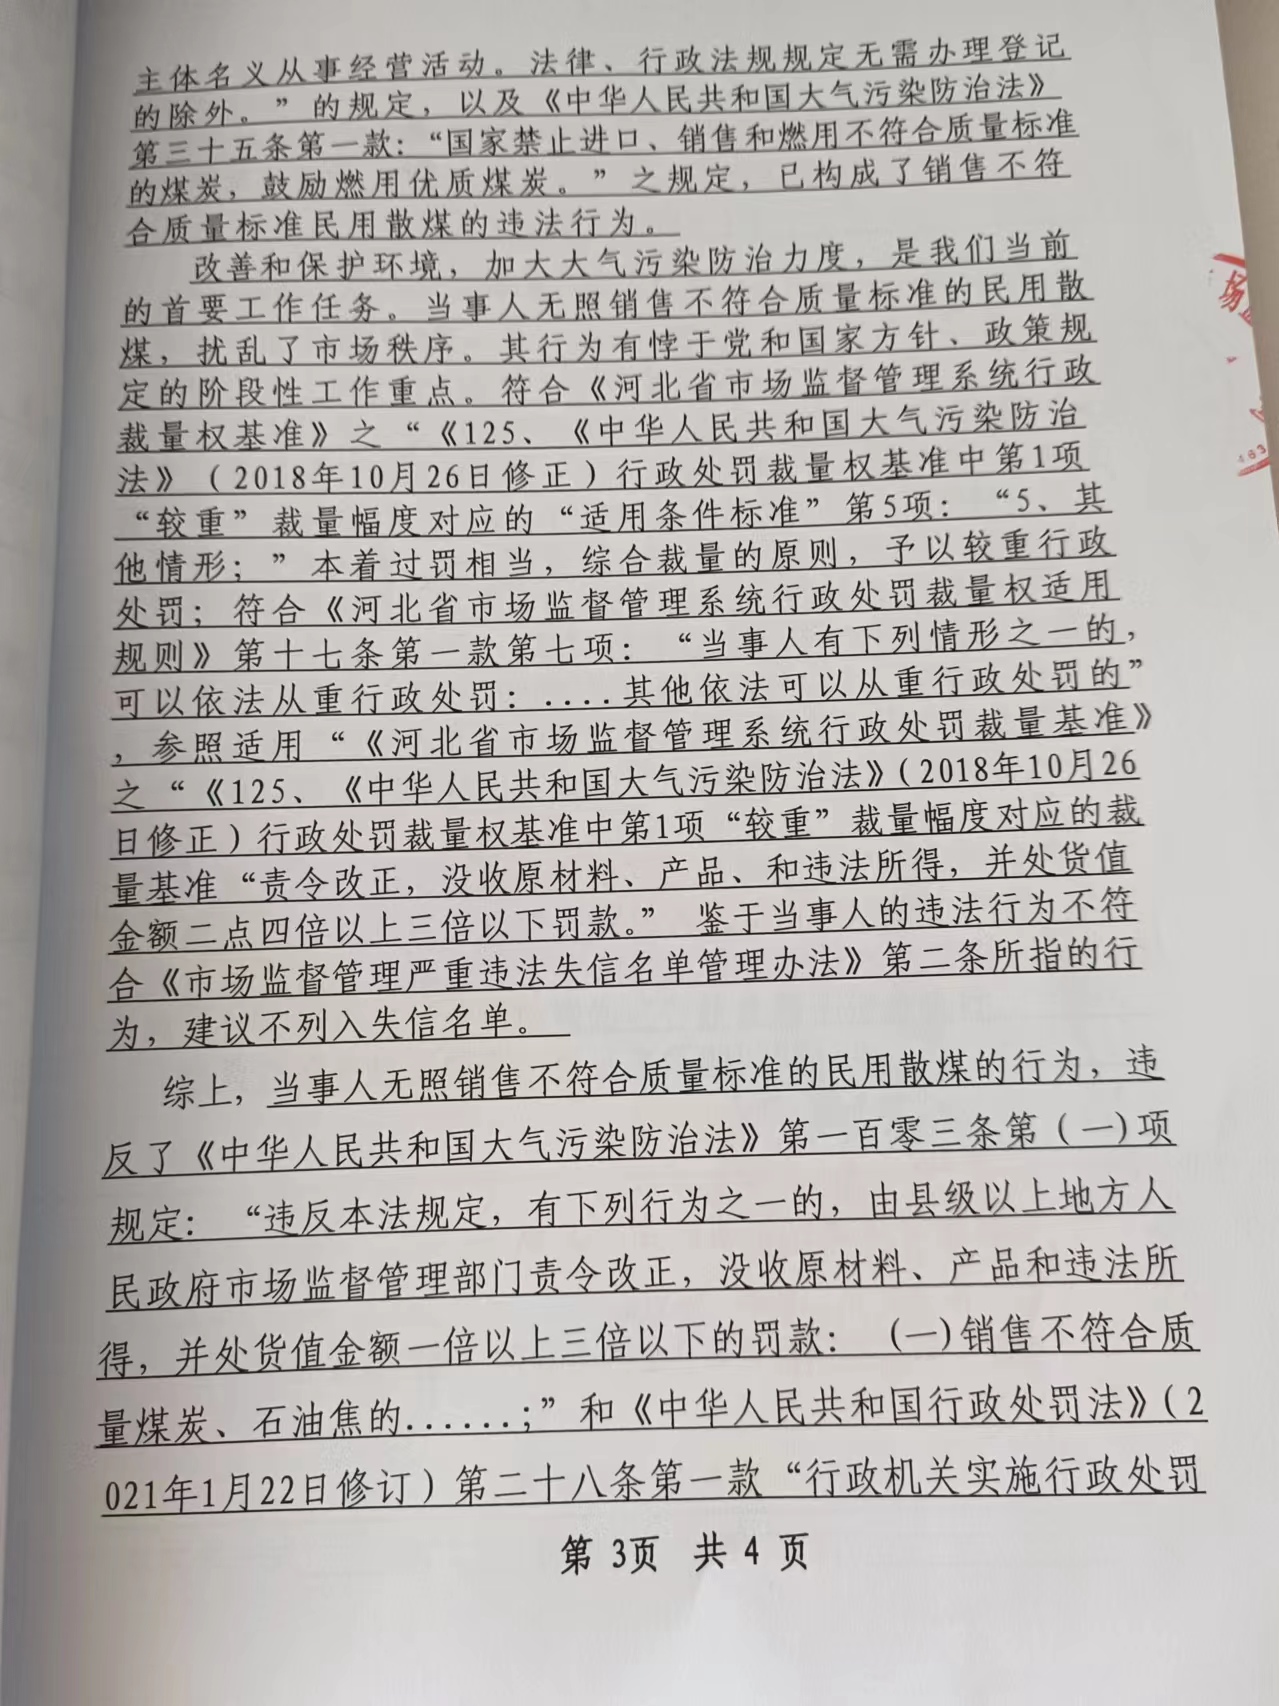 主体名义从事经营活动。法律、行政法规规定无需办理登记
的除外。”的规定，以及《中华人民共和国大气污染防治法》
第三十五条第一款：“国家禁止进口、销售和燃用不符合质量标准
的煤炭，鼓励燃用优质煤炭。”之规定，已构成了销售不符
合质量标准民用散煤的违法行为。
改善和保护环境，加大大气污染防治力度，是我们当前
的首要工作任务。当事人无照销售不符合质量标准的民用散
煤，扰乱了市场秩序。其行为有悖于党和国家方针、政策规
定的阶段性工作重点。符合《河北省市场监督管理系统行政
裁量权基准》之“《125、《中华人民共和国大气污染防治
法》（2018年10月26日修正）行政处罚裁量权基准中第1项
“较重”裁量幅度对应的“适用条件标准”第5项：“5、其
他情形；”本着过罚相当，综合裁量的原则，予以较重行政
处罚；符合《河北省市场监督管理系统行政处罚裁量权适用
规则》第十七条第一款第七项：“当事人有下列情形之一的，
可以依法从重行政处罚：....其他依法可以从重行政处罚的”
，参照适用“《河北省市场监督管理系统行政处罚裁量基准》
之“《125、《中华人民共和国大气污染防治法》（2018年10月26
日修正）行政处罚裁量权基准中第1项“较重”裁量幅度对应的裁
量基准“责令改正，没收原材料、产品、和违法所得，并处货值
金额二点四倍以上三倍以下罚款。” 鉴于当事人的违法行为不符
合《市场监督管理严重违法失信名单管理办法》第二条所指的行
为，建议不列入失信名单。
综上，当事人无照销售不符合质量标准的民用散煤的行为，违
反了《中华人民共和国大气污染防治法》第一百零三条第（一)项
规定：“违反本法规定，有下列行为之一的，由县级以上地方人
民政府市场监督管理部门责令改正，没收原材料、产品和违法所
得，并处货值金额一倍以上三倍以下的罚款：（一)销售不符合质
量煤炭、石油焦的......;”和《中华人民共和国行政处罚法》（2
021年1月22日修订）第二十八条第一款“行政机关实施行政处罚
第 3页 共 4 页